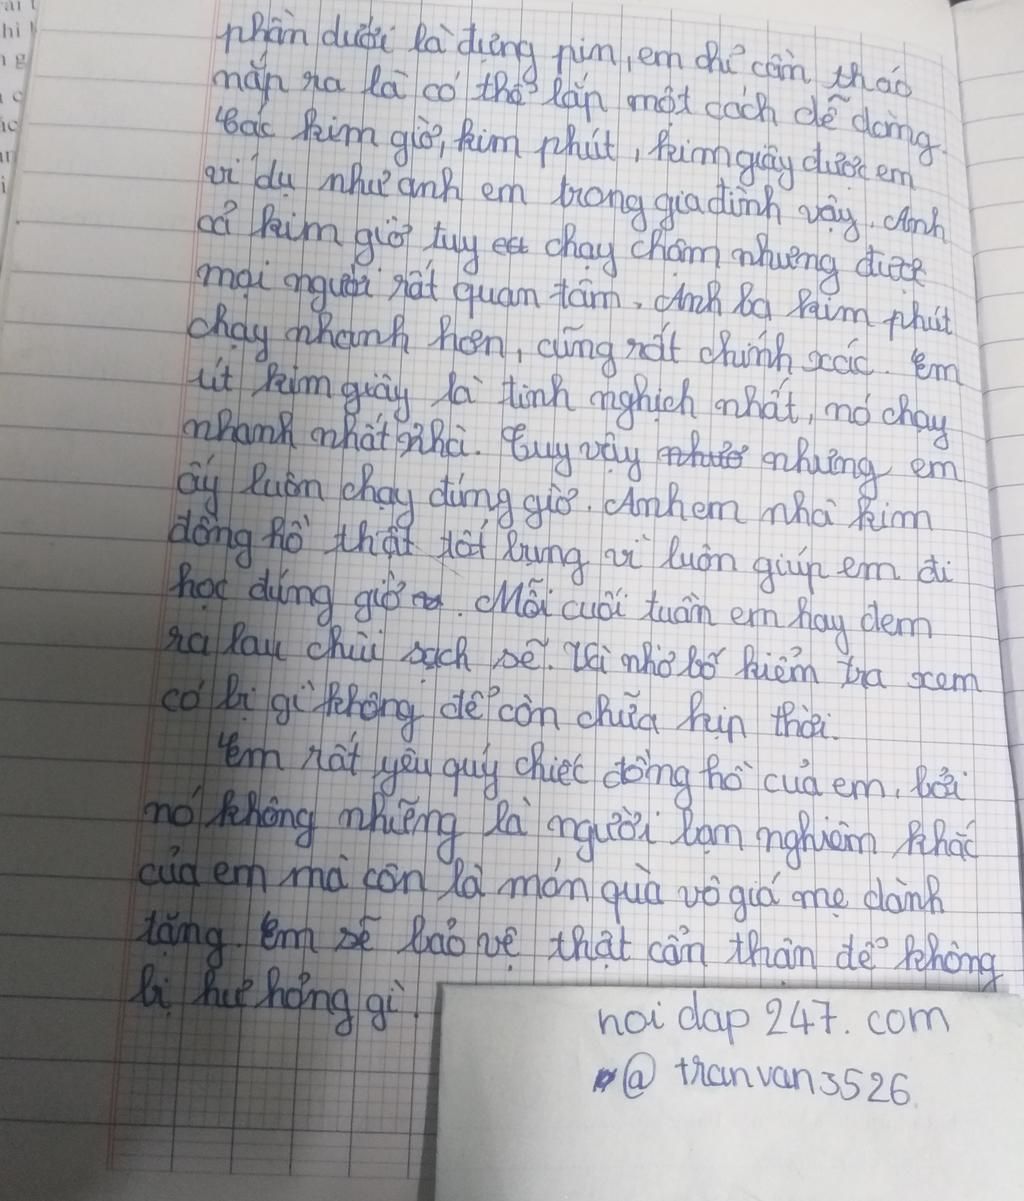 phần dưới là đựng pin, em chỉ cần tháo
nắp ra là có thể lắp một cách dễ dàng.
Các kim giờ, kim phút, kim giây được em
ví dụ như anh em trong gia đình vậy. Anh
cả kim giờ tuy chạy chậm nhưng được
mọi người rất quan tâm. Anh ba kim phút
chạy nhanh hơn, cũng rất chính xác. Em
út kim giây là tinh nghịch nhất, nó chạy
nhanh nhất nhà. Tuy vậy nhưng em
ấy luôn chạy đúng giờ. Anh em nhà kim
đồng hồ thật tốt bụng vì luôn giúp em đi
học đúng giờ. Mỗi cuối tuần em hay đem
ra lau chùi sạch sẽ. Và nhờ bố kiểm tra xem
có bị gì không để còn chữa kịp thời.
Em rất yêu quý chiếc đồng hồ của em, bởi
nó không những là người bạn nghiêm khắc
của em mà còn là món quà vô giá mẹ dành
tặng. Em sẽ bảo vệ thật cẩn thận để không
bị hư hỏng gì.
hoi dap 247. com
@ tranvan3526.